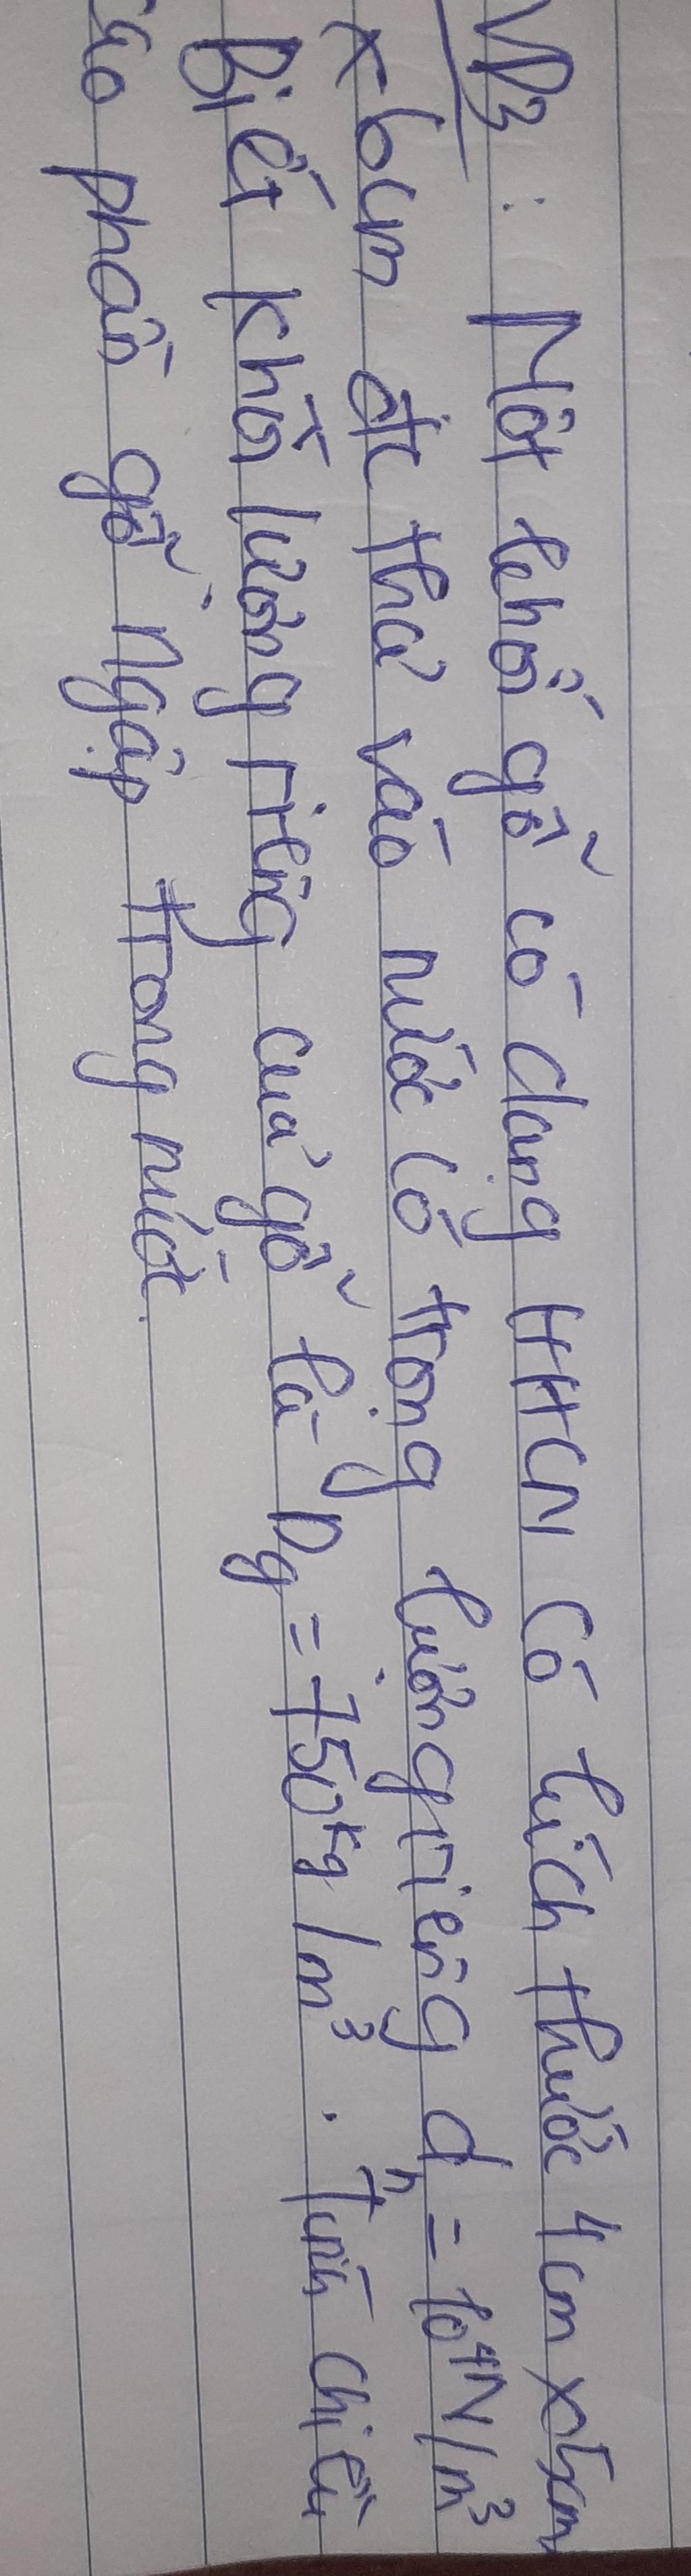 VD3: Một khối gỗ có dạng HHCN có kích thước 4cm x 5cm
x 6cm đc thả vào nước có trọng lượng riêng dn = 10⁴N/m³
Biết khối lượng riêng của gỗ là Dg = 750kg/m³. Tính chiều
cao phần gỗ ngập trong nước.